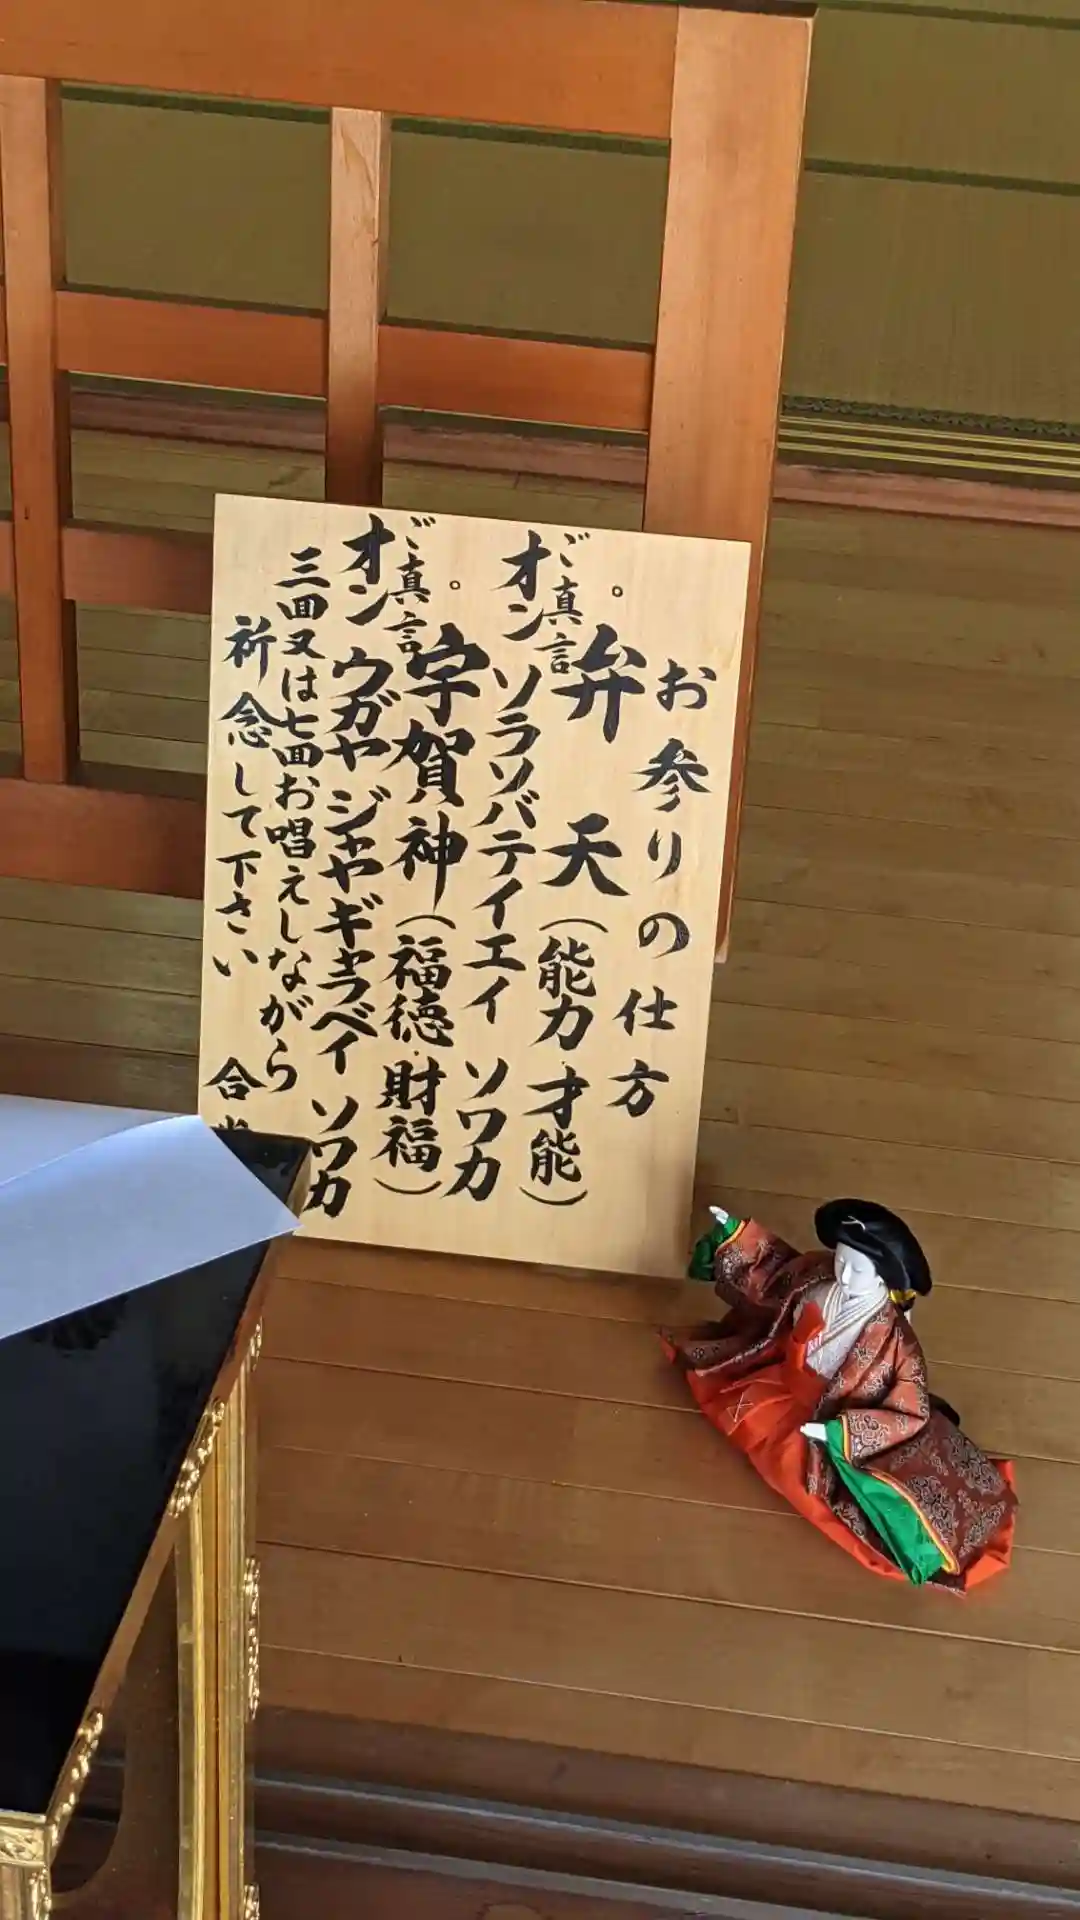 お参りの仕方
。弁天(能力・才能)
ご真言
オン ソラソバテイエイ ソワカ
。宇賀神(福徳・財福)
ご真言
オン ウガヤ ジャヤギャラベイ ソワカ
三回又は七回お唱えしながら
祈念して下さい 合